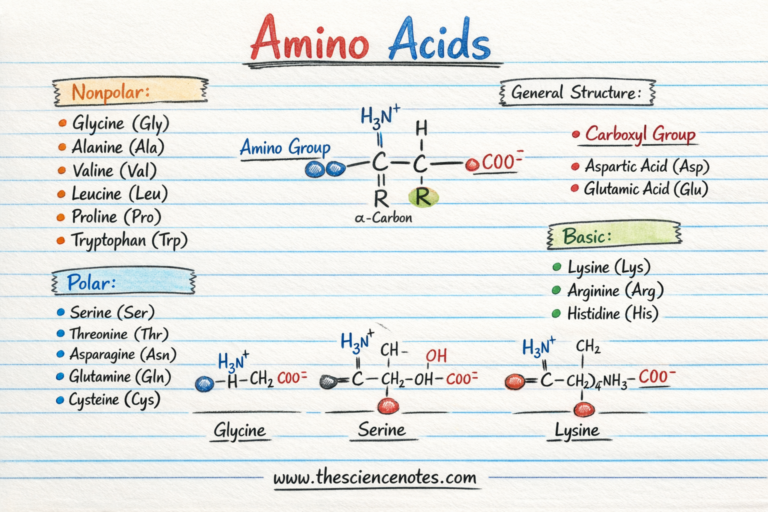 Amino Acids
Nonpolar:
• Glycine (Gly)
• Alanine (Ala)
• Valine (Val)
• Leucine (Leu)
• Proline (Pro)
• Tryptophan (Trp)
Polar:
• Serine (Ser)
• Threonine (Thr)
• Asparagine (Asn)
• Glutamine (Gln)
• Cysteine (Cys)
H₃N⁺
H
Amino Group
C – C – COO⁻
R R
α-Carbon
General Structure:
• Carboxyl Group
• Aspartic Acid (Asp)
• Glutamic Acid (Glu)
Basic:
• Lysine (Lys)
• Arginine (Arg)
• Histidine (His)
H₃N⁺
–H–CH₂ COO⁼
Glycine
H₃N⁺ CH–
OH
=C–CH₂–OH–COO⁼
Serine
H₃N⁺ CH₂
=C–CH₂)₄NH₃–COO⁻
Lysine
www.thesciencenotes.com